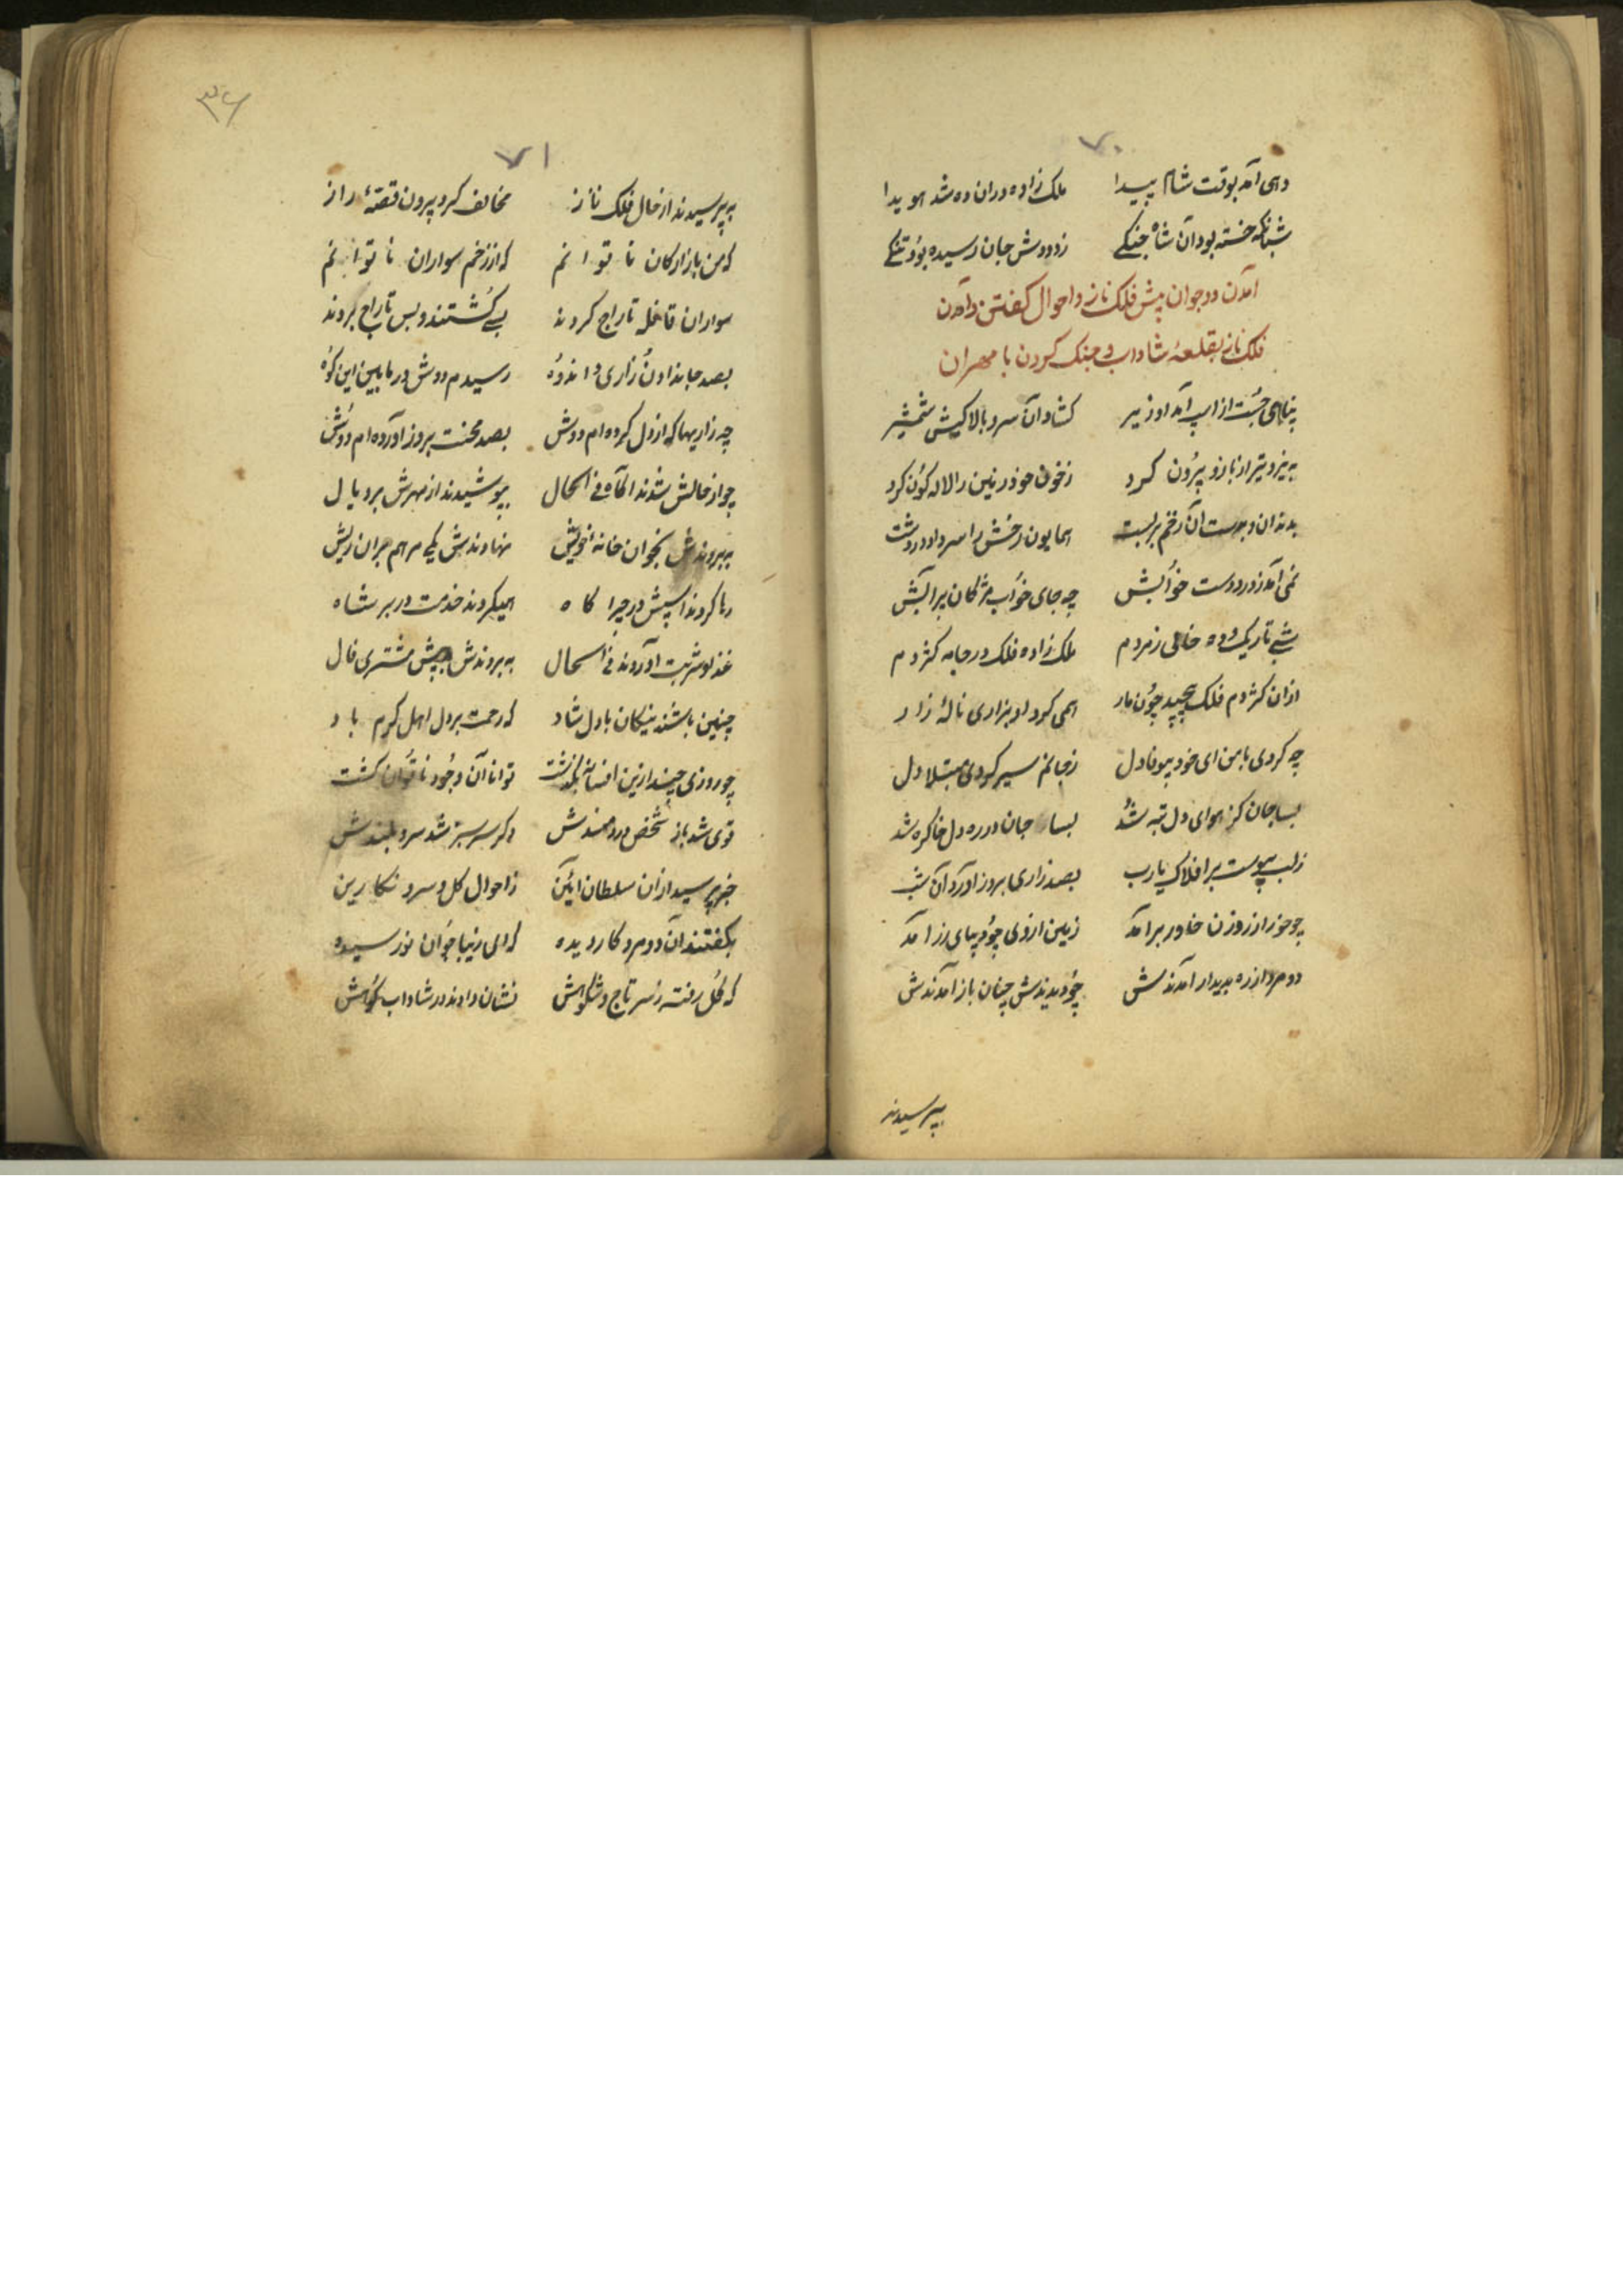 ۷۰
دهی آمد بوقت شام پیدا ملک زاده دران ده شد هویدا
شبانکه خسته بود آن شاه جنکی ز دودش جان رسیده بود تنکی
آمدن دو جوان پیش فلک ناز و احوال کفتن و آمدن
فلک ناز بقلعهٔ شاداب و جنک کردن با مهران
پناهی جست از اسپ آمد او زیر کشاد آن سرو بالا کیش شمشیر
به نیزه تیر از بازو برون کرد ز خون خود زمین را لاله کون کرد
بدندان و بدست آن زخم بربست همایون رخش را سر داد در دشت
نمی آمد ز درد دست خوابش چه جای خواب مژکان پر آبش
شبی تاریک و ده خالی ز مردم ملک زاده فلک در جامه کژدم
ازان کژدم فلک پیچید چون مار همی کرد او بزاری نالهٔ زار
چه کردی با من ای خود بیوفا دل ز جانم سیر کردی مبتلا دل
بسا جان کز هوای دل تبه شد بسا جان در ره دل خاک ره شد
ز لب پیوست بر افلاک یارب بصد زاری بروز آورد آن شب
چو خور از روزن خاور برآمد زمین از وی چو دیبای زر آمد
دو مرد از ره بدیدار آمدندش چو دیدندش چنان باز آمدندش
بپرسیدند
۳۶
۷۱
به پرسیدند از حال فلک ناز مخالف کرد بیرون قصهٔ راز
که من بازارکان ناتوانم که از زخم سواران ناتوانم
سواران قافله تاراج کردند بسی کشتند و بس تاراج بردند
بصد جاندادن و زاری و اندوه رسیدم دوش در مابین این کوه
چه زاریها که از دل کرده ام دوش بصد محنت بروز آورده ام دوش
چو از حالش شدند آکاه فی الحال بپوشیدند از مهرش بر و یال
به بردندش بخوان خانهٔ خویش نهادندش یکی مرهم بران ریش
رها کردند اسپش در چراکاه همیکردند خدمت در بر شاه
غذا و شربت آوردند فی الحال به بردندش به پیش مشتری فال
چنین باشند نیکان با دل شاد که رحمت بر دل اهل کرم باد
چو روزی چند ازین افسانه بکذشت توانا آن وجود ناتوان کشت
قوی شد باز شخص دردمندش دکر سرسبز شد سرو بلندش
خبر پرسید ازان سلطان آئین ز احوال کل و سرو نکارین
بکفتند آن دو مرد کار دیده که ای زیبا جوان نو رسیده
که کل رفته ز سر تاج و شکوهش نشان دادند در شاداب کوهش